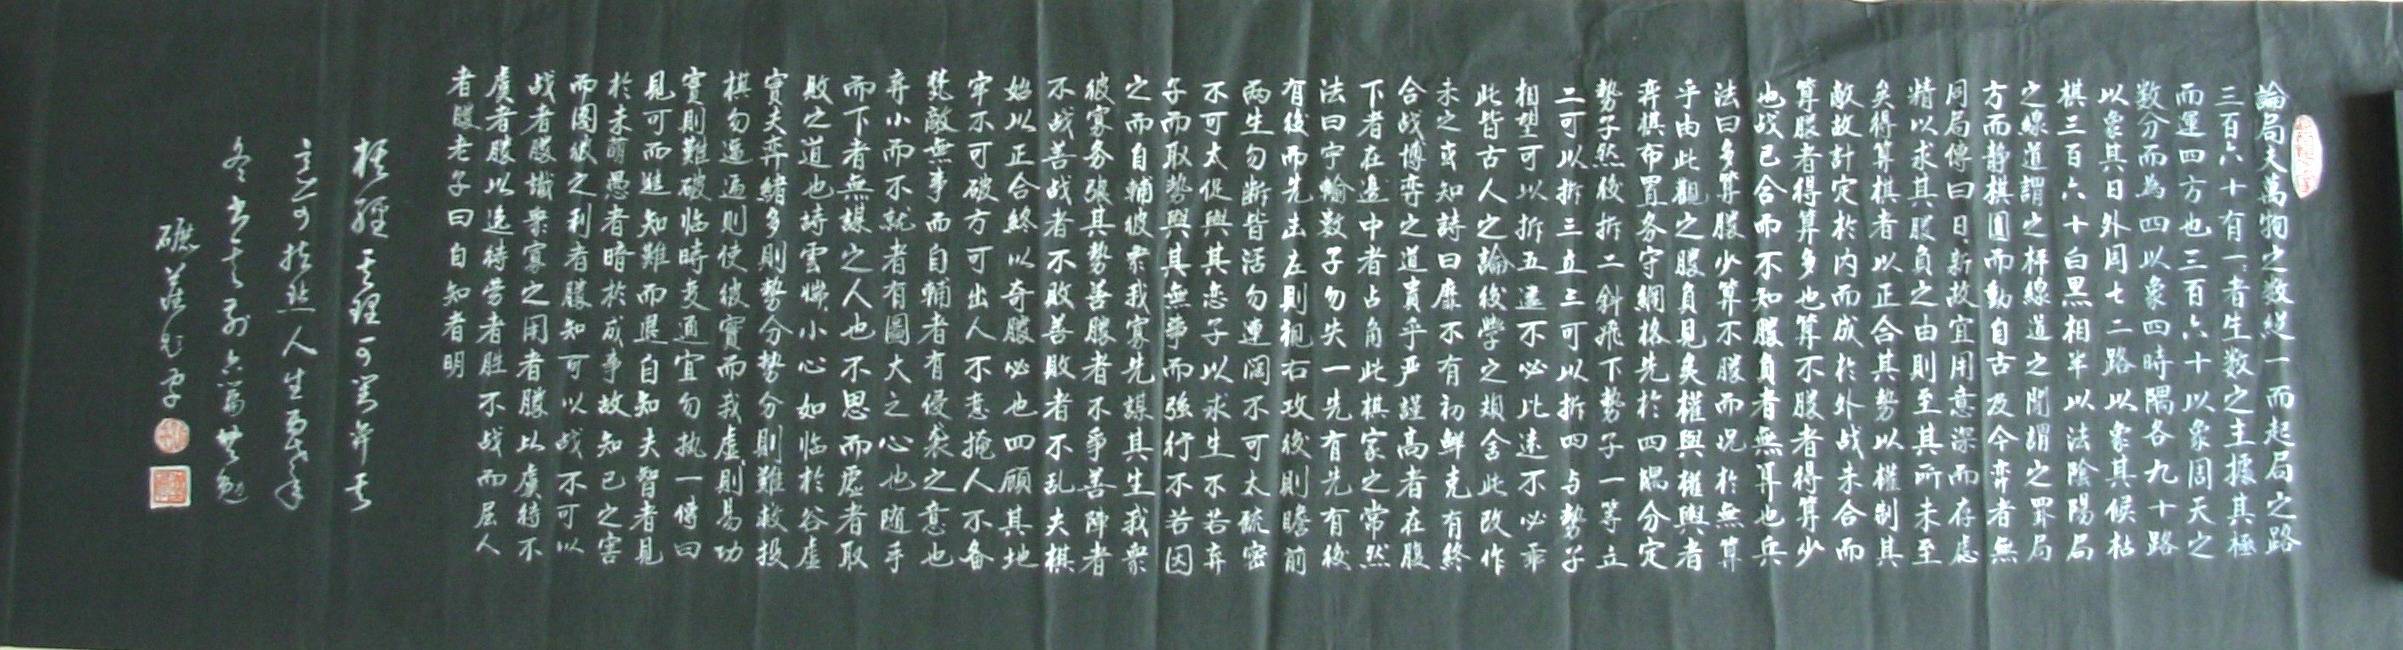 論局夫萬物之数從一而起局之路
三百六十有一一者生数之主據其極
而運四方也三百六十以象周天之
数分而為四以象四時隅各九十路
以象其日外周七二路以象其候枯
棋三百六十白黑相半以法陰陽局
之線道謂之枰線道之間謂之罫局
方而静棋圓而動自古及今弈者無
同局傳曰日新故宜用意深而存慮
精以求其勝負之由則至其所未至
矣得算棋者以正合其勢以權制其
敵故計定於内而成於外战未合而
算勝者得算多也算不勝者得算少
也战已合而不知勝負者無算也兵
法曰多算勝少算不勝而况於無算
乎由此觀之勝負見矣權與權與者
弈棋布置务守綱格先於四隅分定
勢子然後拆二斜飛下勢子一等立
二可以拆三立三可以拆四与勢子
相望可以拆五遠不必比遠不必乖
此皆古人之論後學之規舍此改作
未之或知詩曰靡不有初鮮克有終
合战博弈之道貴乎严謹高者在腹
下者在邊中者占角此棋家之常然
法曰宁輸数子勿失一先有先有後
有後而先击左則視右攻後則瞻前
两生勿断皆活勿連闊不可太疏密
不可太促與其恋子以求生不若弃
子而取勢與其無事而强行不若因
之而自補彼衆我寡先謀其生我衆
彼寡务張其勢善勝者不争善陣者
不战善战者不敗善敗者不乱夫棋
始以正合終以奇勝必也四顧其地
牢不可破方可出人不意掩人不备
凡敵無事而自補者有侵袭之意也
弃小而不就者有圖大之心也随手
而下者無謀之人也不思而應者取
敗之道也詩雲惴小心如临於谷虚
實夫弈緒多則勢分勢分則難救投
棋勿逼逼則使彼實而我虚則易功
實則難破临時变通宜勿执一傳曰
見可而進知難而退自知夫智者見
於未萌愚者暗於成事故知己之害
而圖彼之利者勝知可以战不可以
战者勝識衆寡之用者勝以虞待不
虞者勝以逸待劳者胜不战而屈人
者勝老子曰自知者明
棋經其理可
人生
冬书其前六篇共勉